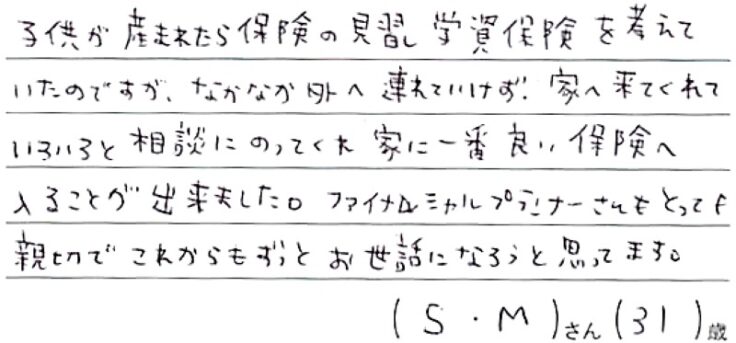 子供が産まれたら保険の見習し 学資保険を考えて
いたのですが、なかなか外へ連れていけず! 家へ来てくれて
いろいろと相談にのってくれ 家に一番良い保険へ
入ることが出来ました。ファイナンシャルプランナーさんもとっても
親切で これからもずっとお世話になろうと思ってます。
(S・M)さん(31)歳